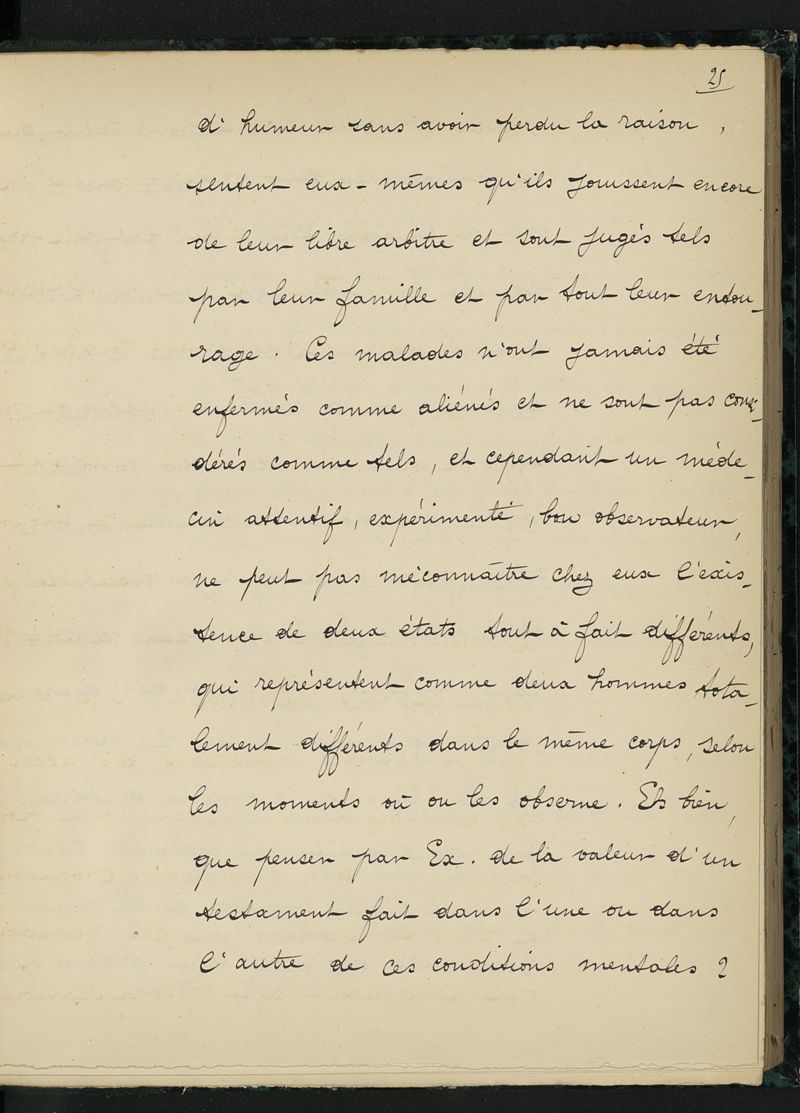 25
d'humeur sans avoir perdu la raison,
sentent eux-mêmes qu'ils jouissent encore
de leur libre arbitre et sont jugés tels
par leur famille et par tout leur entou-
rage. Ces malades n'ont jamais été
enfermés comme aliénés et ne sont pas consi-
dérés comme tels, et cependant un méde-
cin attentif, expérimenté, bon observateur,
ne peut pas méconnaître chez eux l'exis-
tence de deux états tout à fait différents,
qui représentent comme deux hommes tota-
lement différents dans le même corps, selon
les moments où on les observe. Eh bien,
que penser par Ex. de la valeur d'un
testament fait dans l'une ou dans
l'autre de ces conditions mentales ?